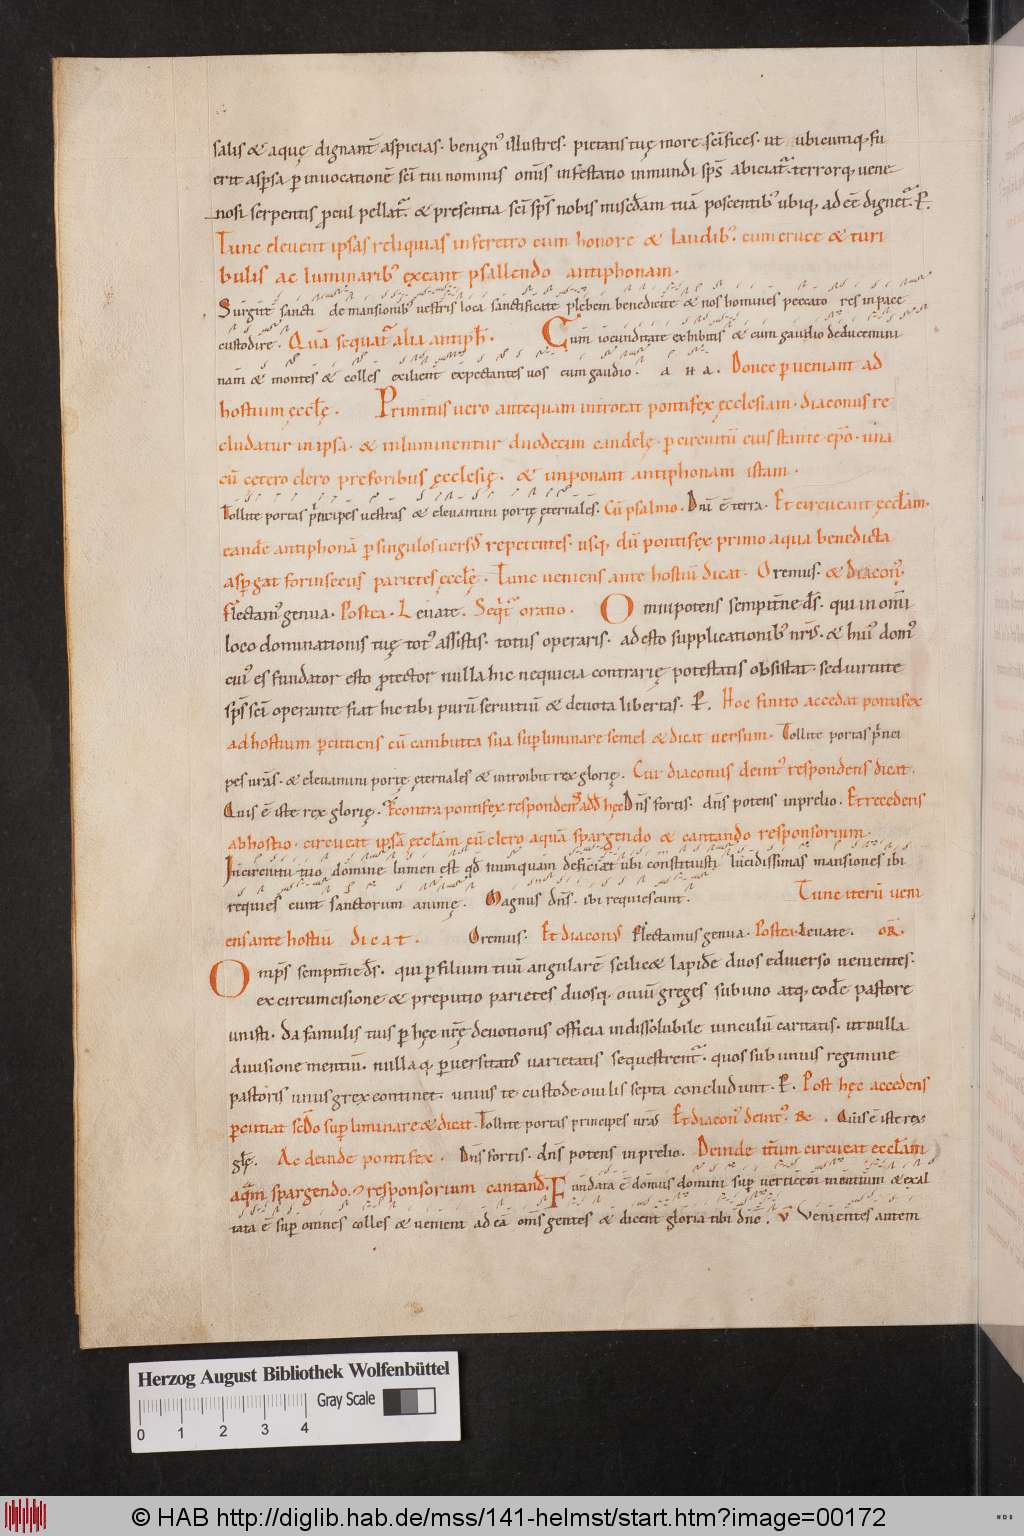 salis & aquę dignant̄ aspicias. benign᷒ illustres. pietatis tuę more sc̄ifices. ut ubicumq; fu
erit asp̄sa p̄ inuocationē sc̄i tui nominis om̄is infestatio inmundi sp̄s abiciat᷑. terrorq; uene
nosi serpentis p̄cul pellat᷑. & presentia sc̄i sp̄s nobis misc̄dam tuā poscentib᷒ ubiq; ad eē dignet᷑. P̄.
Tunc eleuent ipsas reliquias inferetro cum honore & laudib᷒. cum cruce & turi
bulis ac luminarib᷒ exeant psallendo antiphonam.
Surgite sancti de mansionib᷒ uestris loca sanctificate plebem benedicite & nos homines peccato res in pace
custodire. Quā sequat᷑ alia antiph̄. Cum iocunditate exhibitis & cum gaudio deducemini
nam & montes & colles exilient expectantes uos cum gaudio. a ıı a. Donec p̄ueniant ad
hostium ęccl̄ę. Primitus uero antequam introeat pontifex ecclesiam. diaconus re
cludatur in ipsa. & inluminentur duodecim candelę. p̄ circuitū eius stante ep̄o. una
cū cetero clero pre foribus ęcclesię. & inponant antiphonam istam.
Tollite portas p̄ncipes uestras & eleuamini portę ęternales. Cū psalmo. Dn̄i ē terra. Et circueant ęccl̄am.
eandē antiphonā p̄ singulos uers̄ repetentes. usq; dū pontifex primo aqua benedicta
asp̄gat forinsecus parietes ęccl̄ę. Tunc ueniens ante hostiū dicat. Oremus. & diacon᷒.
Flectam᷒ genua. Postea. Leuate. Seq̄t᷑ oratio. Omnipotens sempitn̄e d̄s. qui in om̄i
loco dominationis tuę tot᷒ assistis. totus operaris. adesto supplicationib᷒ nr̄is. & hui᷒ dom᷒
cui᷒ es fundator esto p̄tector nulla hic nequicia contrarię potestatis obsistat. sed uirtute
sp̄s sc̄i operante fiat hic tibi purū seruitiū & deuota libertas. P̄. Hoc finito accedat pontifex
ad hostium p̄cutiens cū cambutta sua sup̄liminare semel & dicat uersum. Tollite portas p̄nci
pes ur̄as. & eleuamini portę ęternales & introibit rex glorię. Cui diaconus deint᷒ respondens dicat.
Quis ē iste rex glorię. Econtra pontifex respondens add̄ hęc Dn̄s fortis. dn̄s potens in prelio. Et recedens
ab hostio. circueat ipsā eccl̄am cū clero aquā spargendo & cantando responsorium.
In circuitu tuo domine lumen est qd̄ numquam deficiet ubi constituisti lucidissimas mansiones ibi
requiescunt sanctorum animę. Magnus dn̄s. ibi requiescunt. Tunc iterū ueni
ens ante hostiū dicat. Oremus. Et diacon᷒ Flectamus genua. Postea. Leuate. oR̄.
Omp̄s sempitn̄e d̄s. qui p̄ filium tuū angularē scilic& lapidē duos ediuerso uenientes.
ex circumcisione & preputio parietes duosq; ouiū greges sub uno atq; eodē pastore
unisti. da famulis tuis p̄ hęc nr̄ę deuotionis officia indissolubile uinculū caritatis. ut nulla
diuisione mentiū. nullaq; p̄uersitatis uarietatis sequestrent᷑. quos sub unius regimine
pastoris unus grex continet. unius te custode ouilis septa concludunt. P̄. Post hęc accedens
p̄cutiat sc̄do sup̄liminare & dicat. Tollite portas principes ur̄as Et diacon᷒ deint᷒. &c. Quis ē iste rex
gl̄ę. Ac deinde pontifex. Dn̄s fortis. dn̄s potens in prelio. Deinde itrūm circueat eccl̄am
aquā spargendo. responsorium cantand̄. Fundata ē domus domini sup̄ uerticem montium & exal
tata ē sup̄ omnes colles & uenient ad eā om̄s gentes & dicent gloria tibi dn̄e. V̄ Uenientes autem
Herzog August Bibliothek Wolfenbüttel
Gray Scale
0 1 2 3 4
© HAB http://diglib.hab.de/mss/141-helmst/start.htm?image=00172